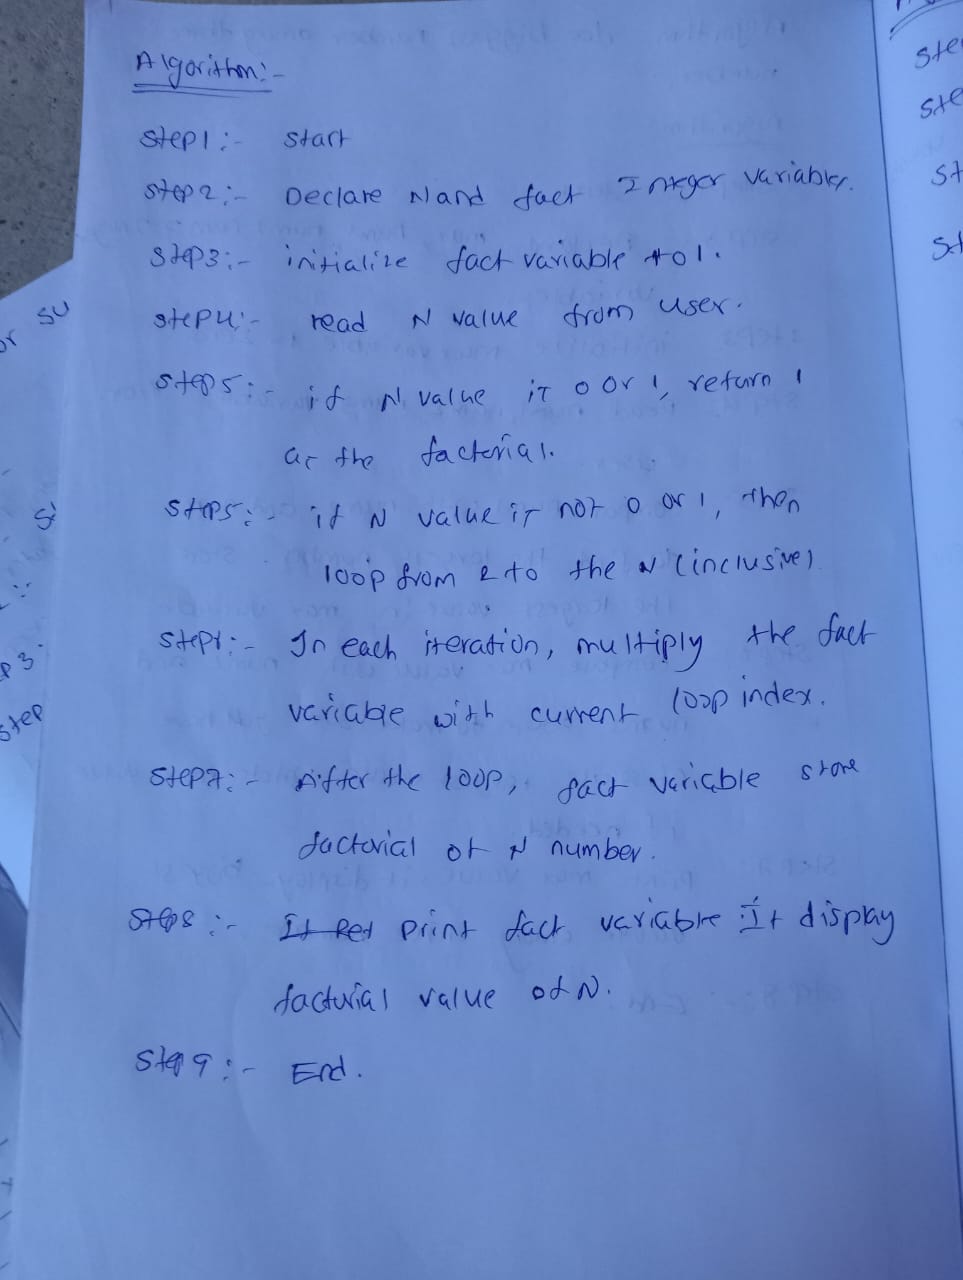 Algorithm:-
Step1:- Start
Step2:- Declare N and fact Integer variables.
Step3:- initialize fact variable to 1.
Step4:- read N value from user.
Step5:- if N value is 0 or 1, return 1
as the factorial.
Step5:- if N value is not 0 or 1, then
loop from 2 to the N (inclusive)
Step:- In each iteration, multiply the fact
variable with current loop index.
Step7:- After the loop, fact variable store
factorial of N number.
Step8:- print fact variable It display
factorial value of N.
Step9:- End.
or su
p3
step
ste
ste
st
st